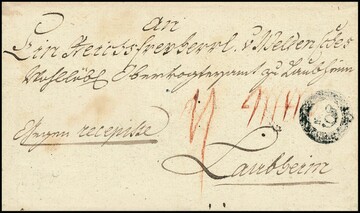 An
Ein Reichsfreyherrl. v. Welden'sches
Wohllöbl. Obervogteyamt zu Laubheim
Gegen recepisse
Laubheim